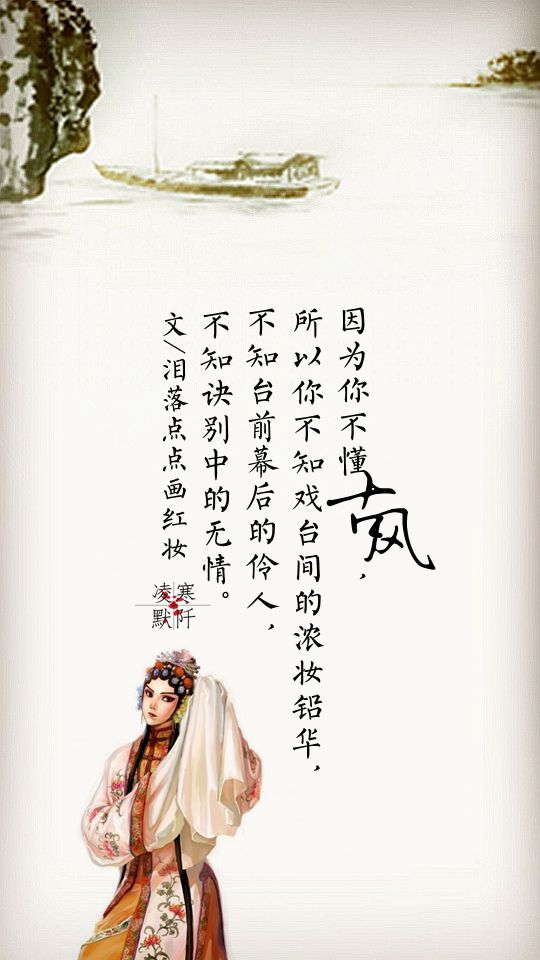 因为你不懂古风，
所以你不知戏台间的浓妆铅华，
不知台前幕后的伶人，
不知诀别中的无情。
文/泪落点点画红妆
凌寒
默阡